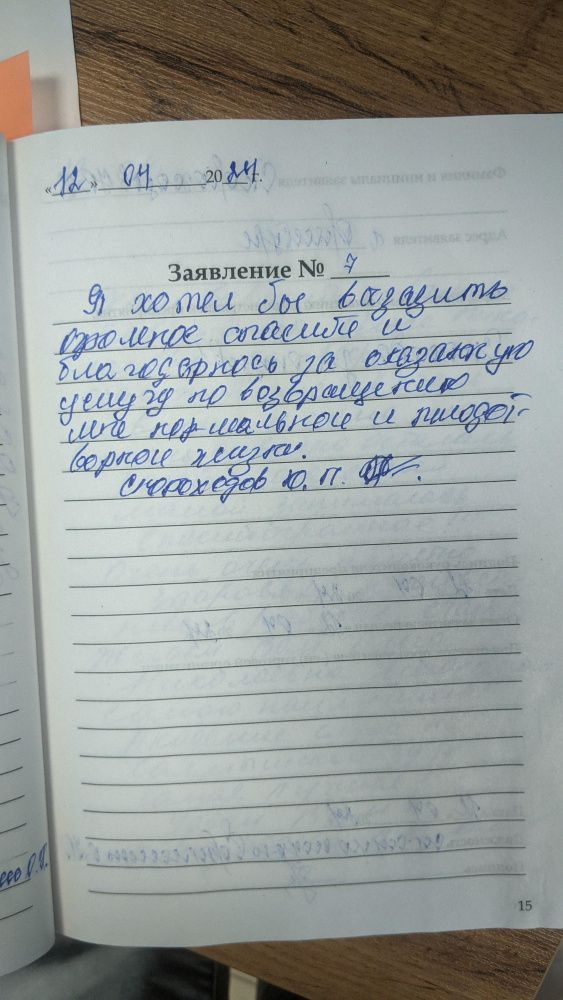 «12» 04 2024 г.
Заявление № 7
Я хотел бы выразить
огромное спасибо и
благодарнось за оказанную
услугу по возвращению
мне нормальной и плодот-
ворной жизни.
Скороходов Ю. П.
15